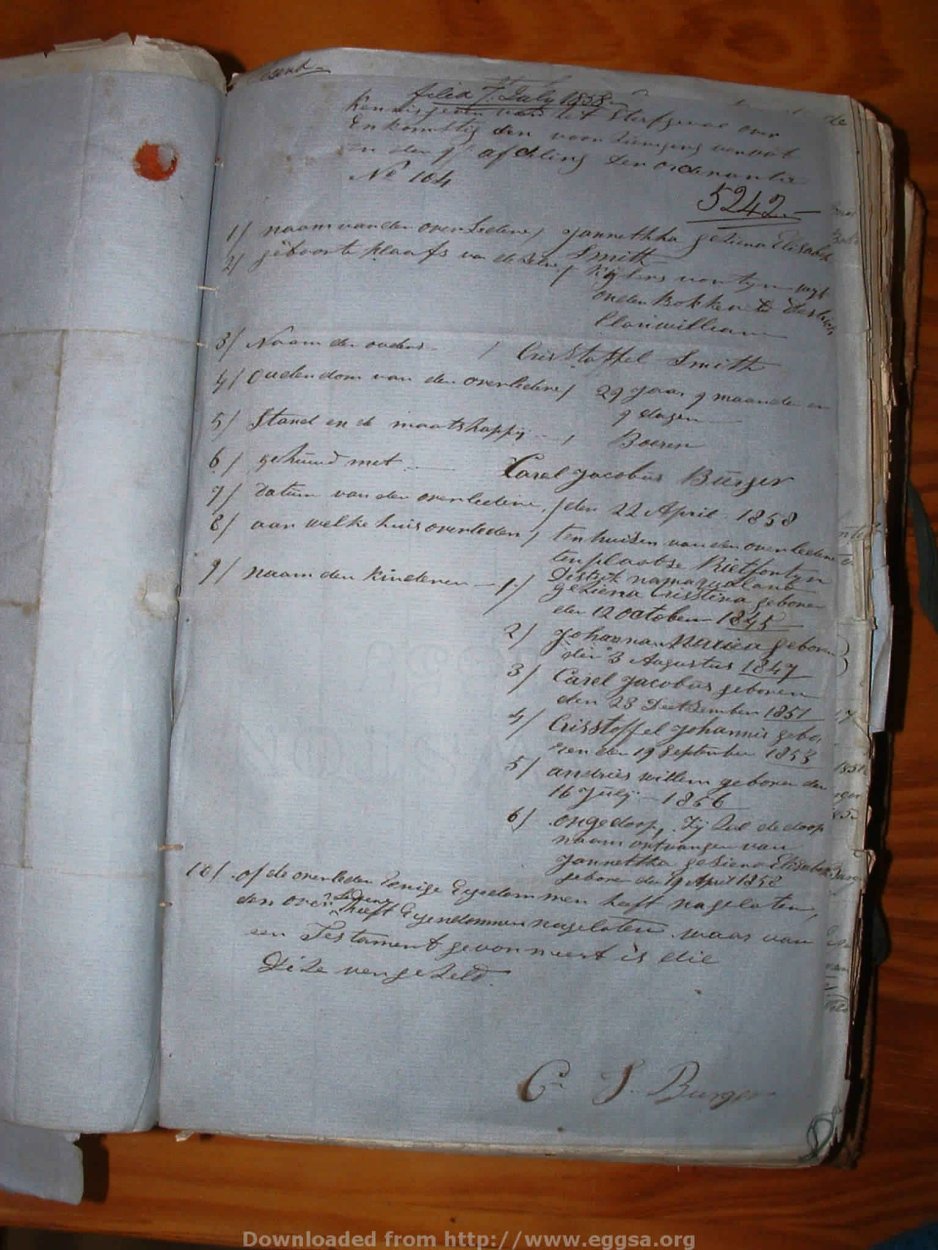 filed 7 July 1858
Kennisgeven van het Sterfgeval over
En komstig den voor
in den 9 afdeling der ordenantie
No 104
5242
1/ naam van den overledene / Jannethha geziena Elisabeth
Smith
2/ geboorte plaats van dezelve /
onder Bokkeveld
Clanwilliam
3/ Naam der ouders / Cristoffel Smith
4/ Ouderdom van den overledene / 29 jaar 9 maanden en
9 dagen
5/ Stand en de maatshappij / Boeren
6/ gehuud met Carel Jacobus Burger
7/ datum van den overledene / den 22 April 1858
8/ aan welke huis overleden / ten huizen van den overledene
ten plaatse Rietfontyn
District namaqualand
9/ Naam der Kinderen 1/ geziena Cristina geboren
den 12 october 1845
2/ Johanna Maria geboren
den 3 Augustus 1847
3/ Carel Jacobus geboren
den 28 1851
4/ Cristoffel Johannis gebo
ren den 19 September 1853
5/ andries willem geboren den
16 July 1856
6/ ongedoop, zij zal de doop
naam ontvangen van
Jannethha geziena Elisabeth
geboren den 19 April 1858
10/ of de overleden Eenige Eigendommen heeft nagelaten,
den overledene heeft Eigendommen nagelaten maar van
een Testament gevormeert is die
Dize vergezeld.
C. J. Burger
Downloaded from http://www.eggsa.org